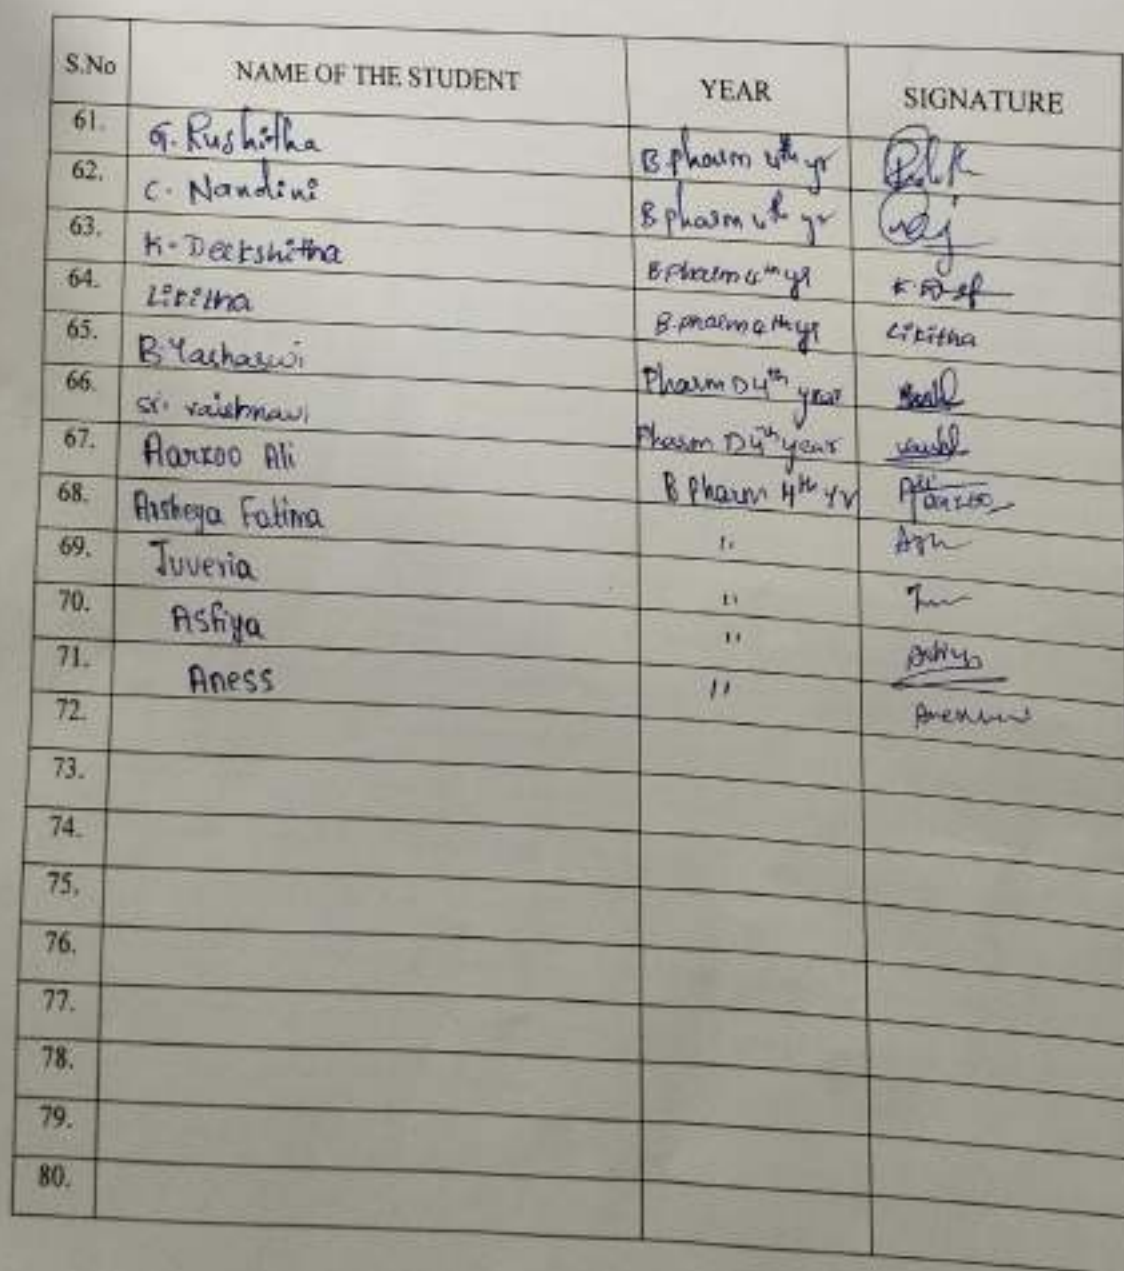 S.No NAME OF THE STUDENT YEAR SIGNATURE
61. G. Rushitha B pharm 4th yr
62. C. Nandini B pharm 4th yr
63. K. Deekshitha B pharm 4th yr
64. Likitha B.pharm 4th yr Likitha
65. B. Yashaswi Pharm D 4th year
66. sr. vaishnavi Pharm D 4th year
67. Aarzoo Ali B Pharm 4th yr
68. Arsheya Fatima "
69. Juveria "
70. Asfiya "
71. Aness "
72.
73.
74.
75.
76.
77.
78.
79.
80.